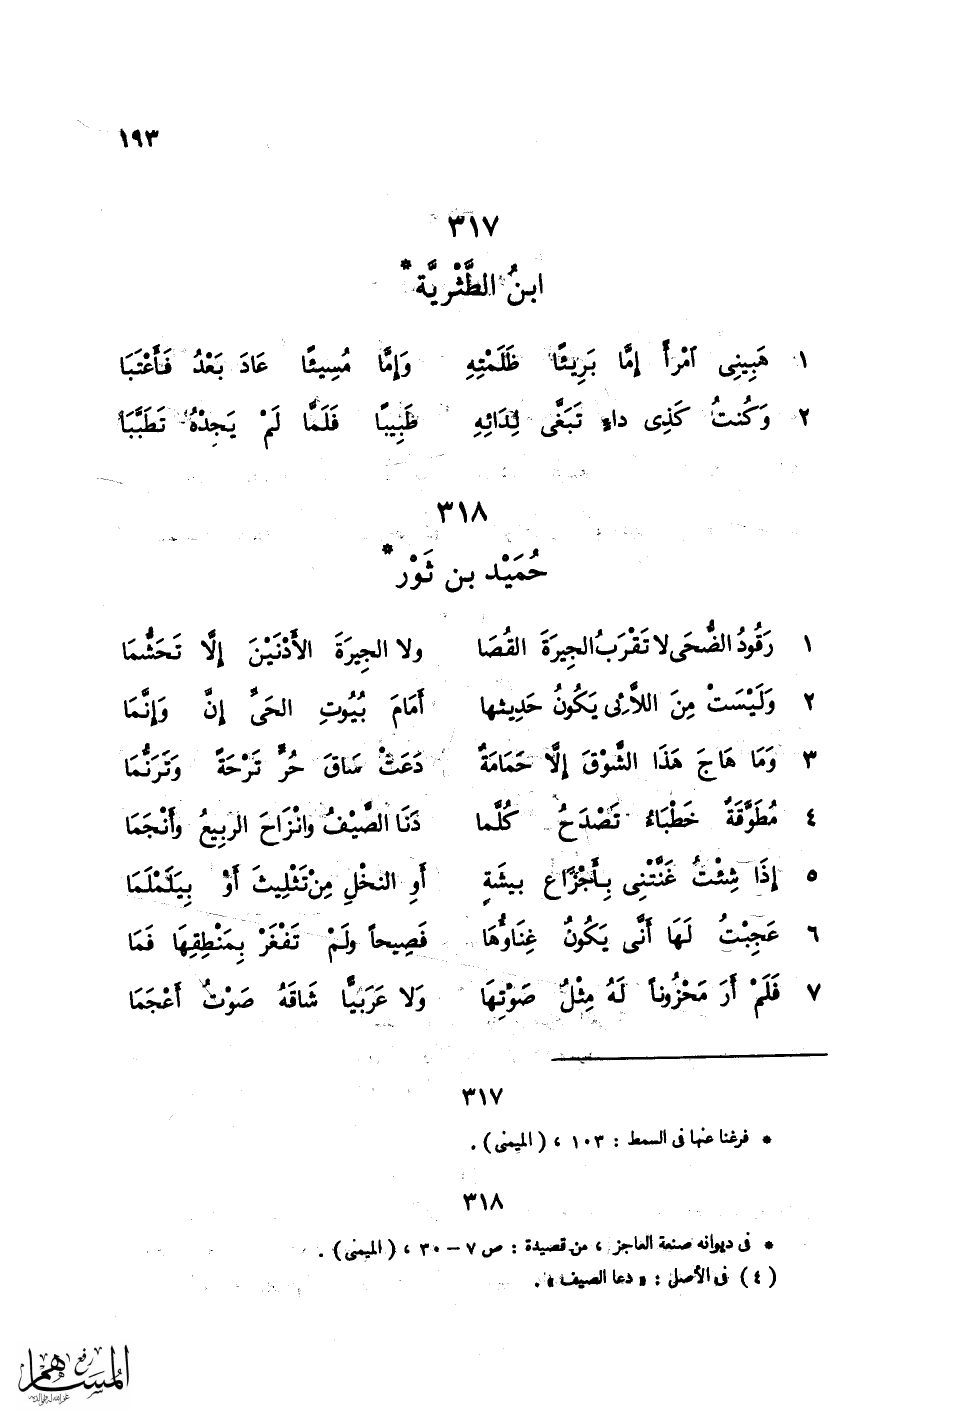 ١٩٣
٣١٧
ابنُ الطَّثْرِيَّة*
١ هَبِينِى امْرأً إمَّا بَرِيئًا ظَلَمْتِهِ وَإِمَّا مُسِيئًا عَادَ بَعْدُ فَأَعْتَبَا
٢ وَكُنتُ كَذِى داءٍ تَبَغَّى لِدَائِهِ طَبِيبًا فَلَمَّا لَمْ يَجِدْهُ تَطَبَّبَا
٣١٨
حُمَيْد بن ثَوْر*
١ رَقُودُ الضُّحَى لا تَقْرَبُ الجِيرَةَ القُصَا ولا الجِيرَةَ الأَدْنَيْنَ إلَّا تَحَشُّمَا
٢ وَلَيْسَتْ مِنَ اللَّائِى يَكُونُ حَدِيثها أَمَامَ بُيُوتِ الحَىِّ إنَّ وَإنَّمَا
٣ وَمَا هَاجَ هَذَا الشَّوْقَ إلَّا حَمَامَةٌ دَعَتْ سَاقَ حُرٍّ تَرْحَةً وَتَرَنُّمَا
٤ مُطَوَّقَةٌ خَطْبَاءُ تَصْدَحُ كُلَّما دَنَا الصَّيْفُ وانْزَاحَ الربِيعُ وأَنْجَمَا
٥ إذَا شِئْتُ غَنَّتْنِى بِأَجْزَاعِ بيشَةٍ أَوِ النخْلِ مِنْ تَثْلِيثَ أَوْ بِيَلَمْلَمَا
٦ عَجِبْتُ لَهَا أَنَّى يَكُونُ غِنَاوُهَا فَصِيحاً ولَمْ تَفْغَرْ بِمَنْطِقِهَا فَمَا
٧ فَلَمْ أَرَ مَحْزُوناً لَهُ مِثْلُ صَوْتِهَا وَلا عَرَبِيًّا شَاقَهُ صَوْتُ أَعْجَمَا
٣١٧
* فرغنا عنها فى السمط : ١٠٣ ، (الميمنى) .
٣١٨
* فى ديوانه صنعة العاجز ، من قصيدة : ص ٧ – ٣٠ ، (الميمنى) .
(٤) فى الأصل : « دعا الصيف » .